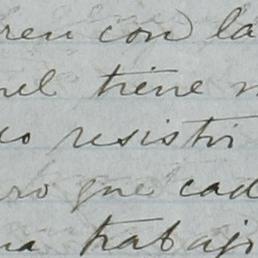 ren con la
nel tiene n
co resistir
ro que cad
na trabajo